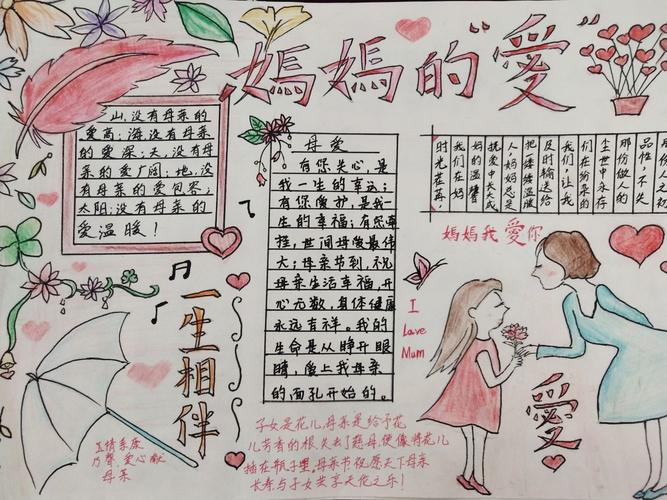 媽媽的"愛"
山,没有母亲的
爱高;海没有母亲
的爱深;天,没有母
亲的爱广阔;地,没
有母亲的爱包容;
太阳,没有母亲的
爱温暖!
母爱
有您关心,是
我一生的幸运;
有您爱护,是我一
生的幸福;有您牵
挂,世间母爱最伟
大;母亲节到,祝
母亲生活幸福,开
心无数,身体健康
永远吉祥。我的
生命是从睁开眼
睛,爱上我母亲
的面孔开始的。
时光荏苒,
我们在妈
妈的温馨
抚爱中长大成
人,妈妈总是
把缕缕温暖
及时输送给
我们,让我
们在纷杂的
尘世中永存
那份做人的
品性,不失
媽媽我愛你
一生相伴
I
Love
Mum
愛
子女是花儿,母亲是给予花
儿芳香的根,失去了慈母,便像将花儿
插在瓶子里。母亲节祝愿天下母亲
长寿与子女共享天伦之乐!
爱心献
母亲